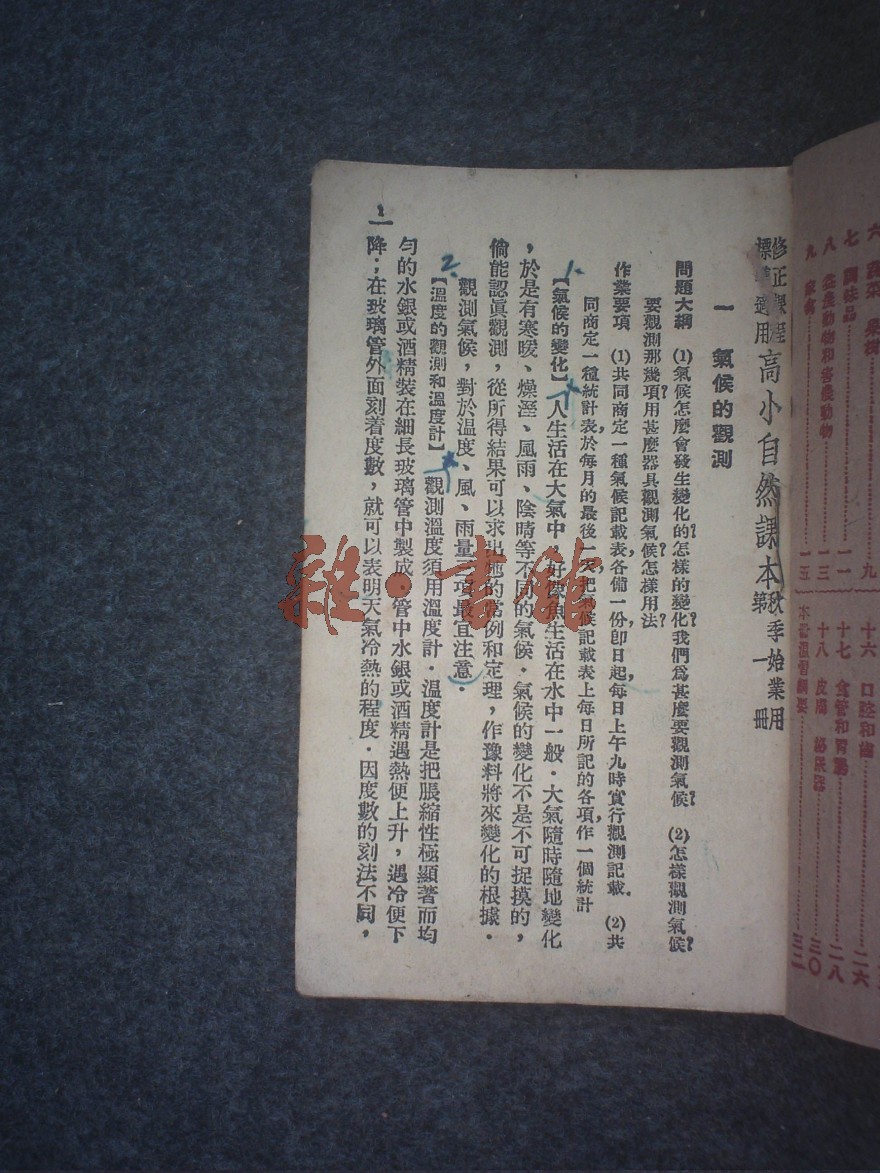 修正課程標準適用
高小自然課本
秋季始業用
第一冊
一 氣候的觀測
問題大綱 (1)氣候怎麽會發生變化的?怎樣的變化?我們爲甚麽要觀測氣候? (2)怎樣觀測氣候?
要觀測那幾項?用甚麽器具觀測氣候?怎樣用法?
作業要項 (1)共同商定一種氣候記載表,各備一份,卽日起,每日上午九時實行觀測記載. (2)共
同商定一種統計表,於每月的最後一天,把氣候記載表上每日所記的各項,作一個統計
1.
【氣候的變化】人生活在大氣中,好像魚生活在水中一般.大氣隨時隨地變化
,於是有寒暖、燥溼、風雨、陰晴等不同的氣候.氣候的變化不是不可捉摸的,
倘能認眞觀測,從所得結果可以求出牠的常例和定理,作豫料將來變化的根據.
觀測氣候,對於溫度、風、雨量三項最宜注意.
2.
【溫度的觀測和溫度計】觀測溫度須用溫度計.溫度計是把脹縮性極顯著而均
勻的水銀或酒精裝在細長玻璃管中製成.管中水銀或酒精遇熱便上升,遇冷便下
降;在玻璃管外面刻着度數,就可以表明天氣冷熱的程度.因度數的刻法不同,
1
六 蔬菜 果樹………九
七 調味品………一一
八 益農動物和害農動物………一三
九 家禽………一五
十六 口腔和齒………二六
十七 食管和胃腸………二八
十八 皮膚 泌尿器………三〇
本書溫習綱要………三二
雜·書館